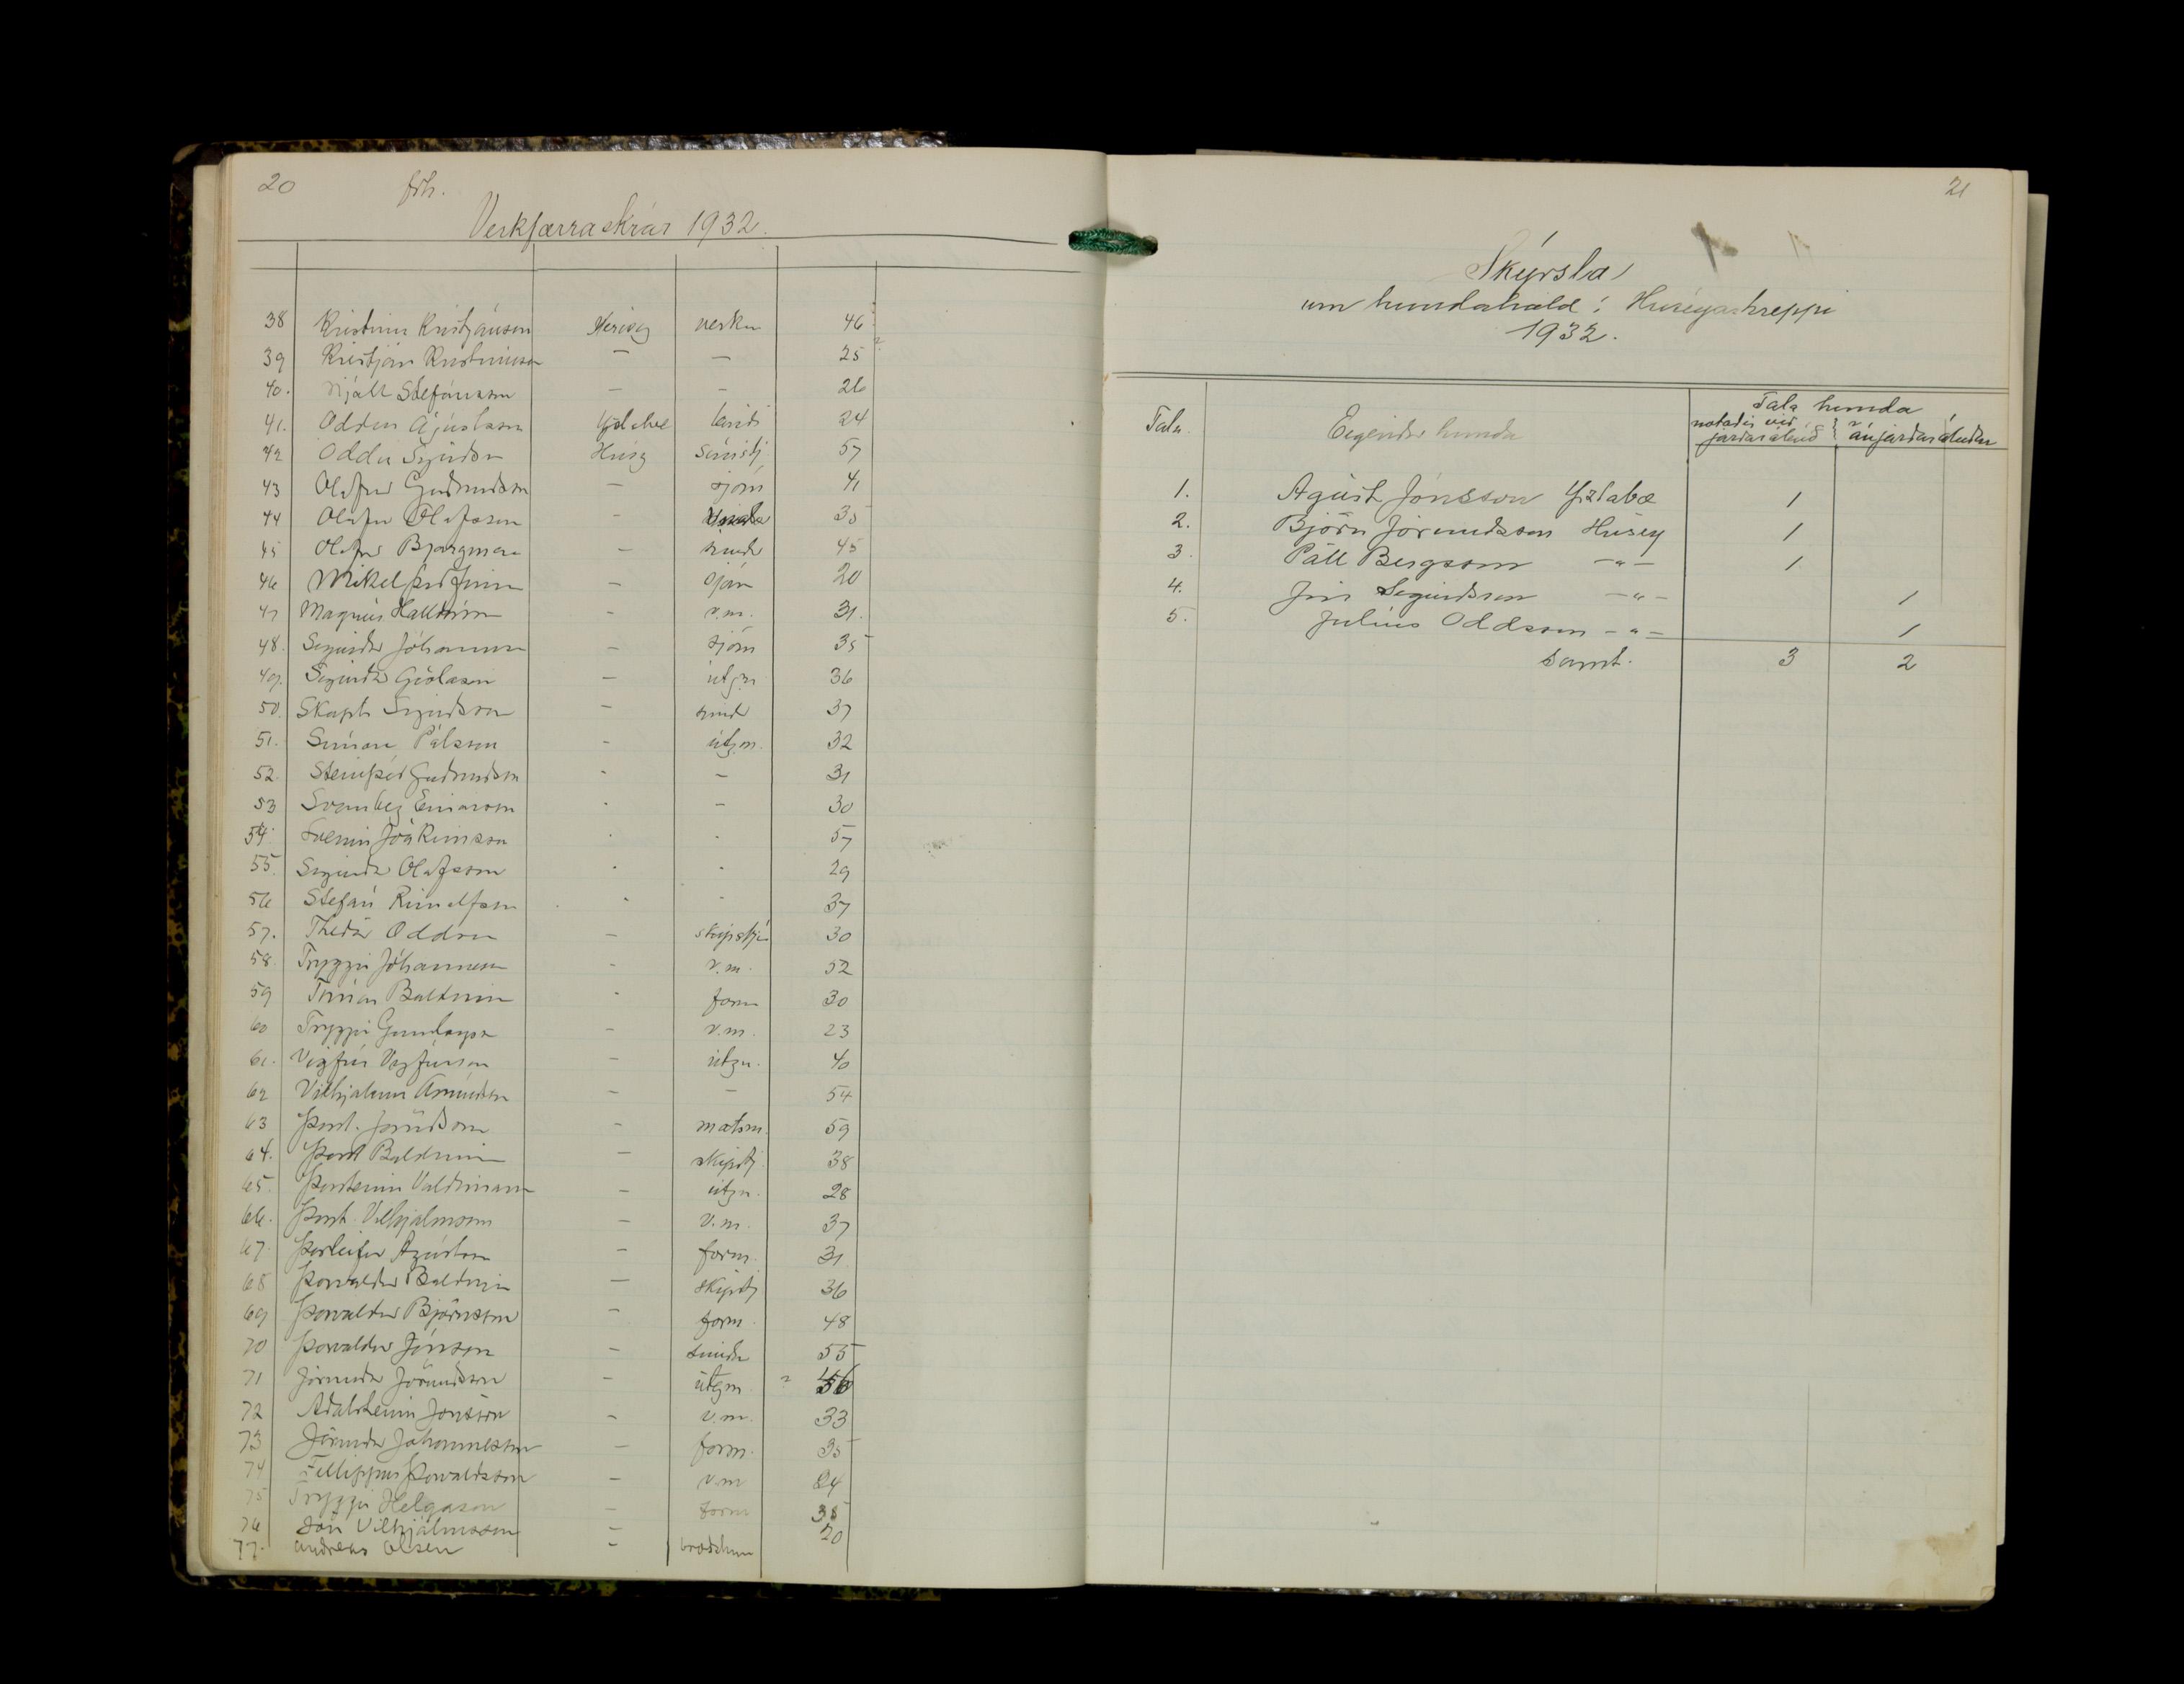 20
frh.
Verkfærraskrár 1932.
38 Kristinn Kristjánsson Hrisey verkm 46
39 Kristján Kristinsson — — 25
40. Njáll Stefánsson — — 26
41. Oddur Ágústsson Yztabæ 24
42 Oddur Sigurdson Hrisey 57
43 Olafur Gudmundsson — sjóm 41
44 Olafur Olafsson - 35
45 Olafur Bjargman — smidur 45
46 Mikel — sjóm 20
47 Magnús - v.m. 31.
48. Sigurdur Jóhannsson — sjóm 35
49. Sigurdur Gíslason — útgm 36
50. Skapti Sigurdsson — smidr 37
51. Simon Pálsson - útg.m. 32
52. Steinþór Gudmundsson - — 31
53 Svanberg Einarsson . — 30
54. Sveinn Jóakimsson . . 57
55. Sigurdur Olafsson . . 29
56 Stefán Runolfsson . . 37
57. Oddsson — skipstj 30
58. Tryggvi Jóhannesson - v.m. 52
59 Baldvin - form 30
60 Tryggvi Gunnlaugss — v.m. 23
61. Vigfús Vigfússon — útgm. 40
62 Vilhjalmur Ámundson — — 54
63 Þorst. Jörundsson - matsm. 59
64. Þorst Baldvinn — skipstj 38
65. Þorsteinn Valdimarss — útgm. 28
66. Þorst. Vilhjalmsson — v.m. 37
67. Þorleifur Ágústsson — form. 31
68 Þorvaldur Baldvin — skipstj 36
69 Þorvaldur Björnsson — form. 48
70 Þorvaldur Jónsson — smidur 55
71 Jörundur Jörundsson — útgm ? 56
72 Adalsteinn Jonsson - v.m. 33
73 Jörundur Jóhannesson — form. 35
74 Fillippus Þorvaldsson — v.m 24
75 Tryggvi Helgason — form 35
76 Jón Vilhjálmsson — 20
77. Andreas Olsen -
21
Skýrsla
um hundahald í Hríseyarhreppi
1932.
Tala. Eigendur hunda Tala hunda
notadir vid
1. Agúst Jónsson Yztabæ 1
2. Björn Jörundsson Hrísey 1
3. Páll Bergsson —"— 1
4. Jón Sigurdsson —"— 1
5. Julíus Oddsson —"— 1
Samt. 3 2